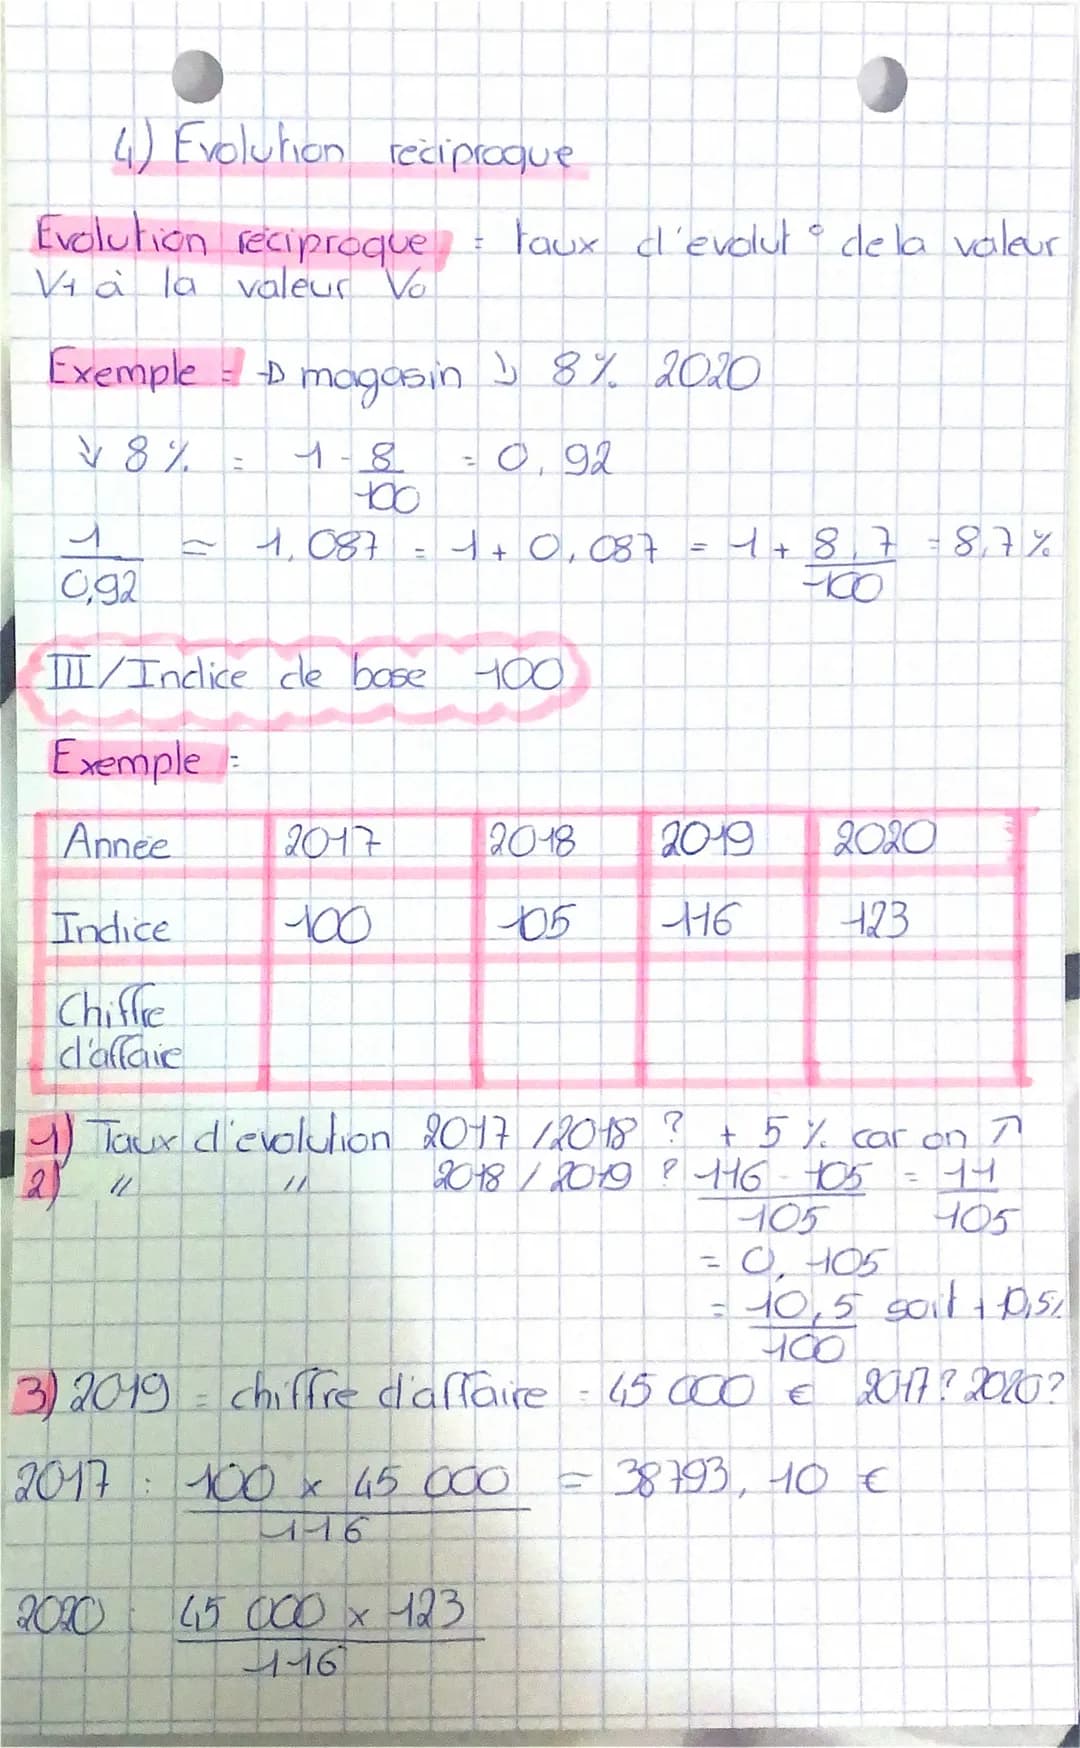 4) Evolution réciproque
Evolution réciproque = taux d'évolut° de la valeur
V1 à la valeur V0
Exemple = → magasin ↘ 8% 2020
↓ 8% = 1 - 8/100 = 0,92
1/0,92 = 1,087 = 1 + 0,087 = 1 + 8,7/100 = 8,7%
III/Indice de base 100
Exemple :
Année 2017 2018 2019 2020
Indice 100 105 116 123
Chiffre
d'affaire
1) Taux d'évolution 2017 / 2018 ? + 5 % car on ↗
2) " " 2018 / 2019 ? 116 - 105/105 = 11/105
= 0,105
= 10,5/100 soit + 10,5%
3) 2019 = chiffre d'affaire = 45 000 € 2017? 2020?
2017 : 100 x 45 000/116 = 38793,10 €
2020 : 45 000 x 123/116